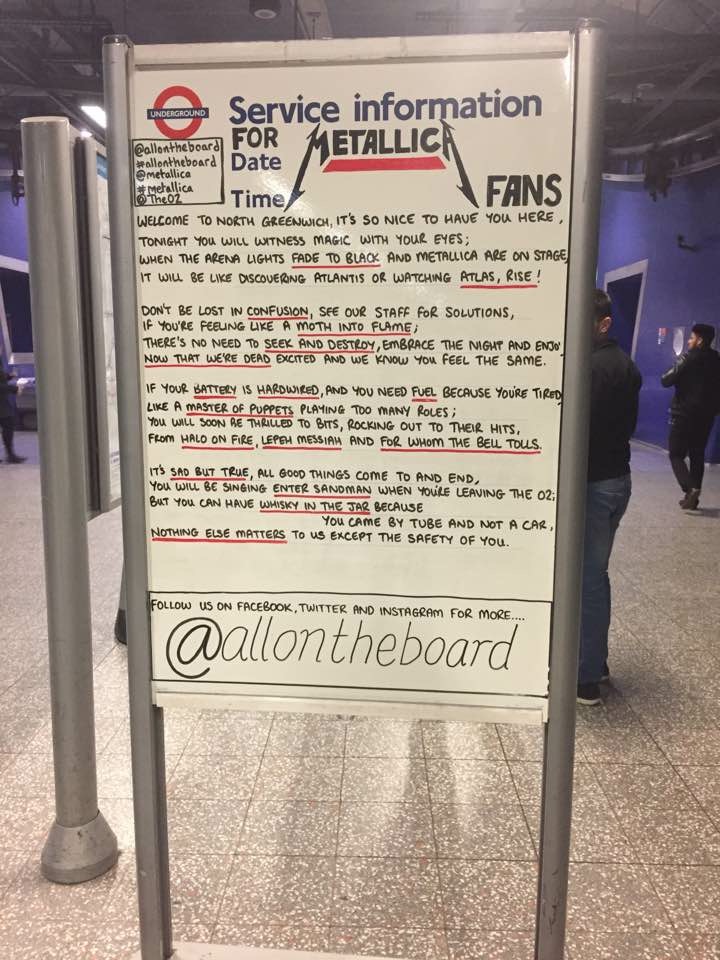 UNDERGROUND
Service information
FOR METALLICA
Date
Time
FANS
@allontheboard
#allontheboard
@metallica
#metallica
@TheO2
WELCOME TO NORTH GREENWICH, IT'S SO NICE TO HAVE YOU HERE,
TONIGHT YOU WILL WITNESS MAGIC WITH YOUR EYES;
WHEN THE ARENA LIGHTS FADE TO BLACK AND METALLICA ARE ON STAGE,
IT WILL BE LIKE DISCOVERING ATLANTIS OR WATCHING ATLAS, RISE!
DON'T BE LOST IN CONFUSION, SEE OUR STAFF FOR SOLUTIONS,
IF YOU'RE FEELING LIKE A MOTH INTO FLAME;
THERE'S NO NEED TO SEEK AND DESTROY, EMBRACE THE NIGHT AND ENJOY
NOW THAT WE'RE DEAD EXCITED AND WE KNOW YOU FEEL THE SAME.
IF YOUR BATTERY IS HARDWIRED, AND YOU NEED FUEL BECAUSE YOU'RE TIRED,
LIKE A MASTER OF PUPPETS PLAYING TOO MANY ROLES;
YOU WILL SOON BE THRILLED TO BITS, ROCKING OUT TO THEIR HITS,
FROM HALO ON FIRE, LEPEH MESSIAH AND FOR WHOM THE BELL TOLLS.
IT'S SAD BUT TRUE, ALL GOOD THINGS COME TO AND END,
YOU WILL BE SINGING ENTER SANDMAN WHEN YOU'RE LEAVING THE O2;
BUT YOU CAN HAVE WHISKY IN THE JAR BECAUSE
YOU CAME BY TUBE AND NOT A CAR,
NOTHING ELSE MATTERS TO US EXCEPT THE SAFETY OF YOU.
FOLLOW US ON FACEBOOK, TWITTER AND INSTAGRAM FOR MORE....
@allontheboard